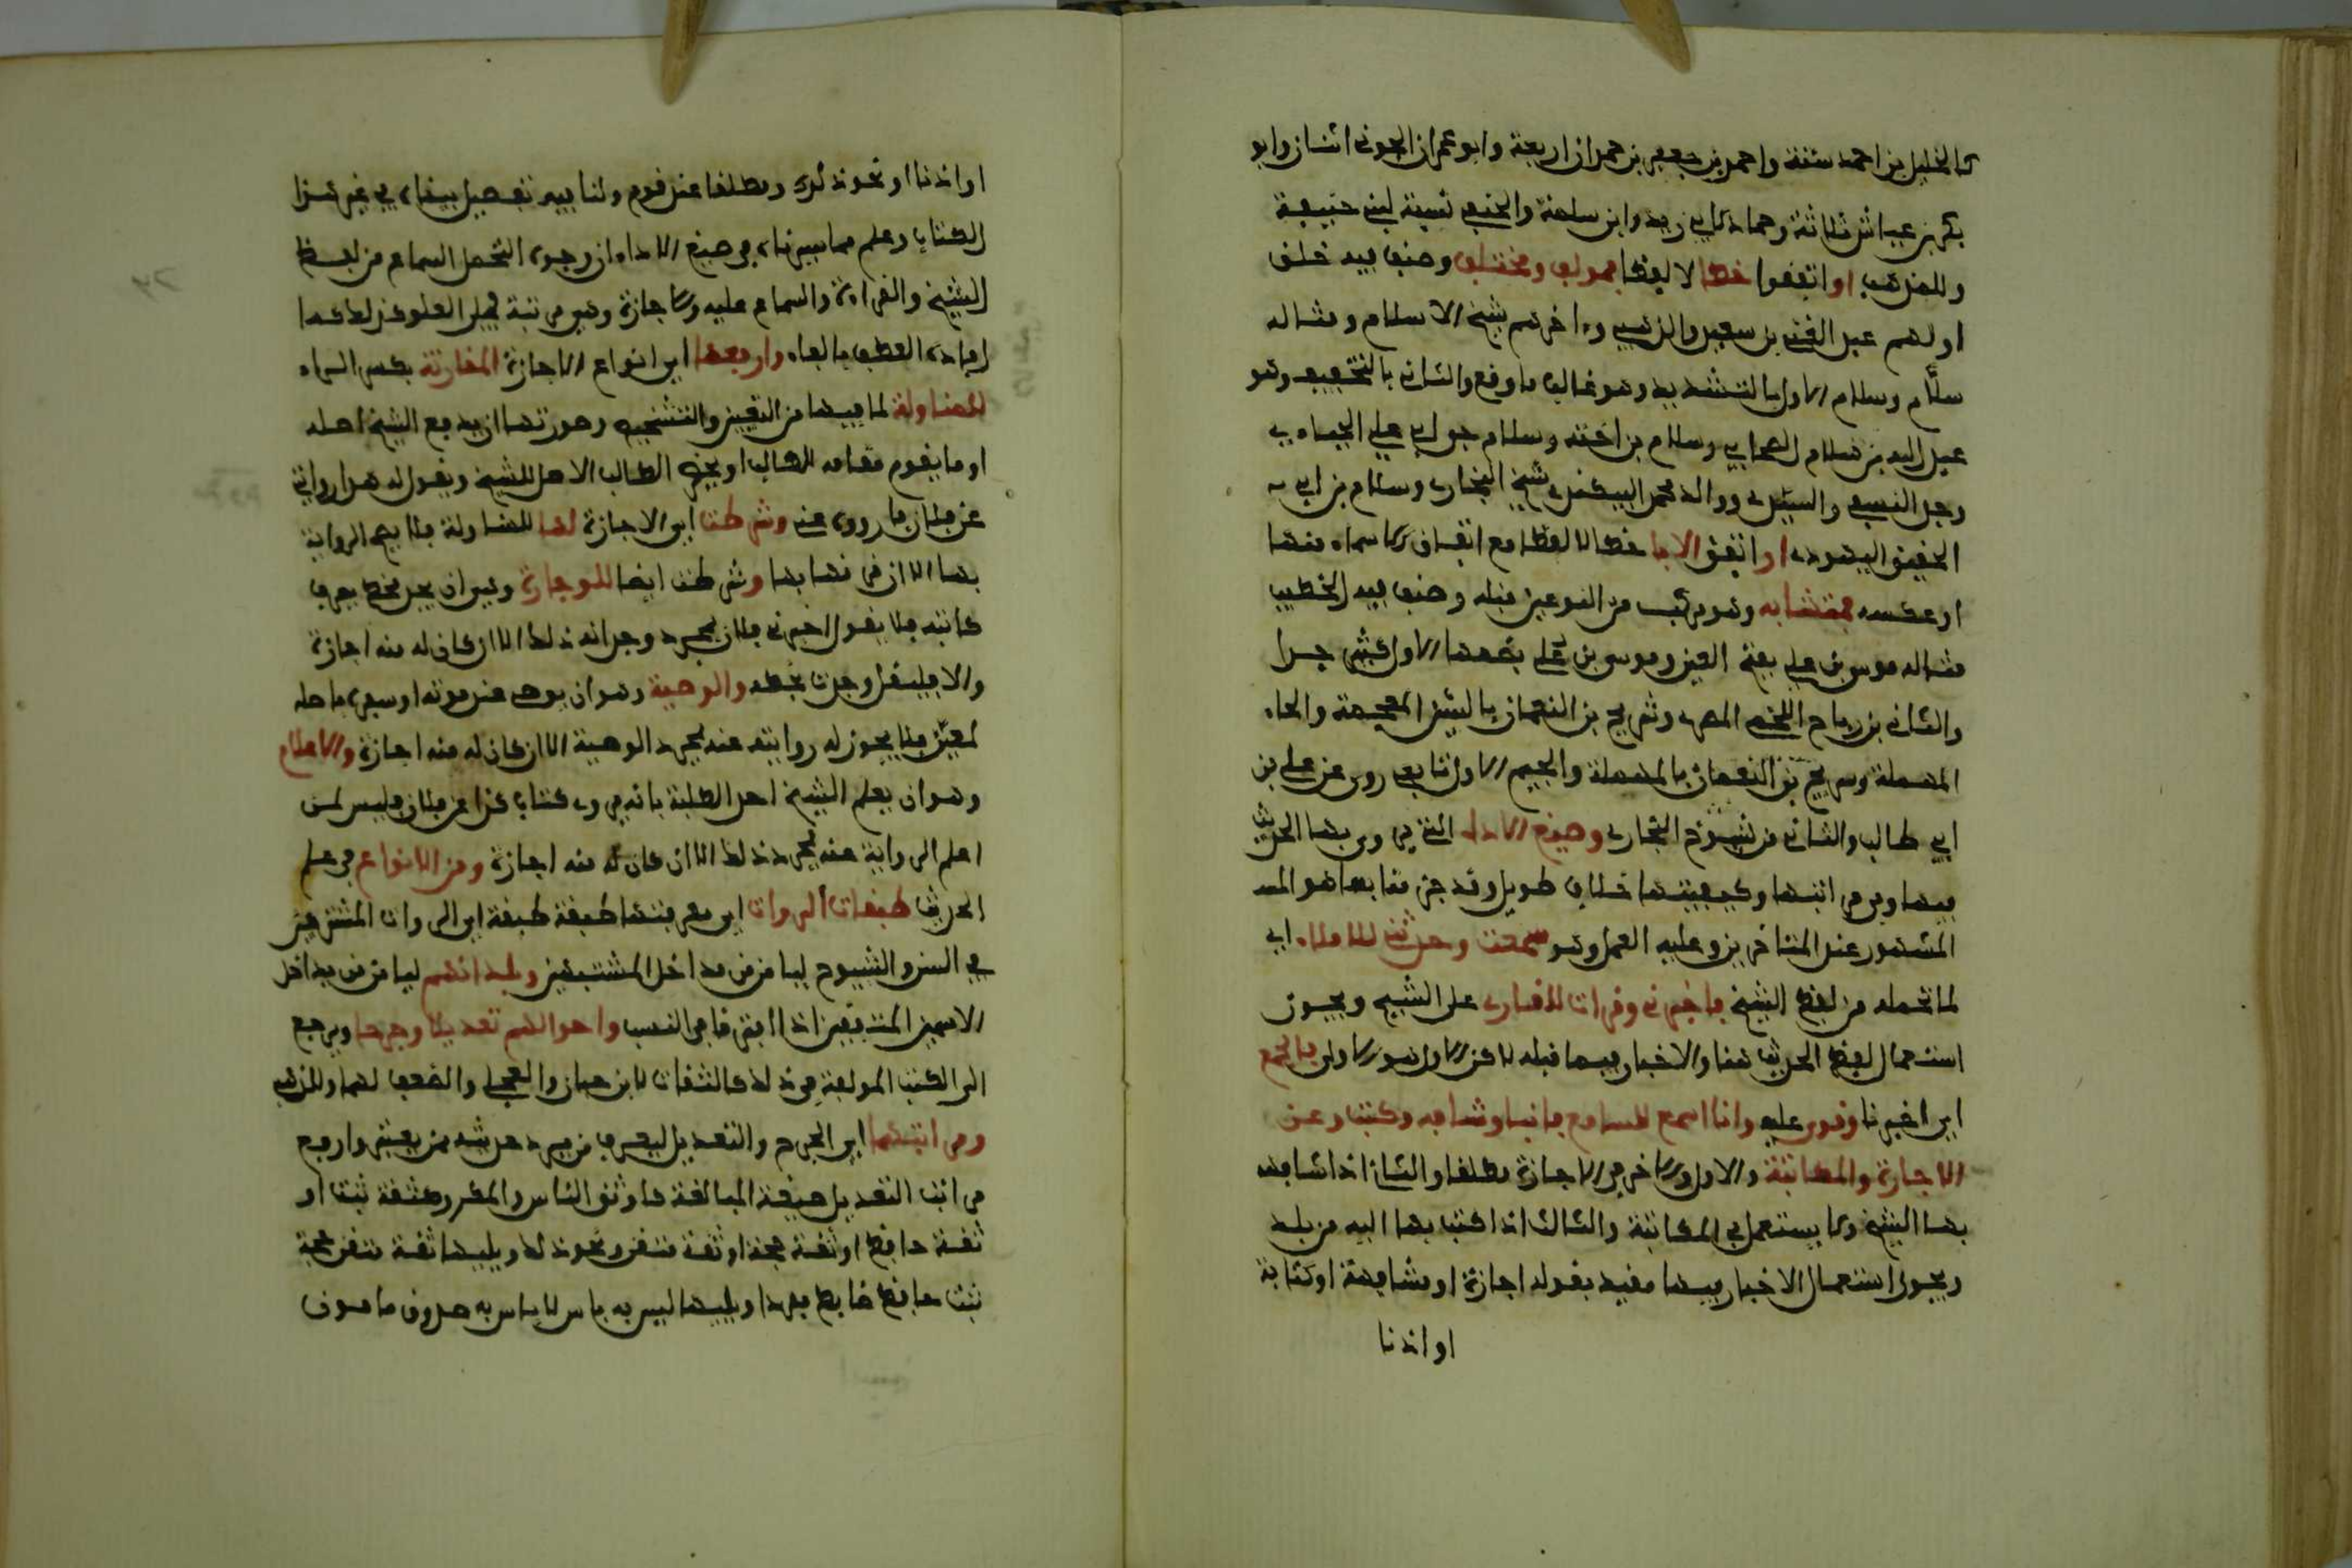 كالخليل بن احمد ستة واحمد بن جعفر بن حمدان اربعة وابو عمران الجوني اثنان وابو
بكر بن عياش ثلاثة وحماد لابن زيد وابن سلمة والحنفي نسبة لبني حنيفة
وللمذهب او اتفقوا خطا لا لفظا فمؤلف ومختلف وصنف فيه خلق
اولهم عبد الغني بن سعيد والذهبي وءاخرهم شيخ الاسلام ومثاله
سلّام وسلام الاول بالتشديد وهو غالب ما وقع والثاني بالتخفيف وهو
عبد الله بن سلام الصحابي وسلام بن اخته وسلام جد ابي علي الجباءي
وجد النسفي والسيدي ووالد محمد البيكندي شيخ البخاري وسلام بن ابي
الحقيق اليهودي او اتفق الابا خطا لا لفظا مع اتفاق الاسماء منها
او عكسه فمتشابه وهو مركب من النوعين قبله وصنف فيه الخطيب
مثاله موسى بن علي بفتح العين وموسى بن عُلي بضمها الاول كثير جدا
والثاني بن رباح اللخمي المصري وشريح بن النعمان بالشين المعجمة والحاء
المهملة وسريج بن النعمان بالمهملة والجيم الاول تابعي روى عن علي بن
ابي طالب والثاني من شيوخ البخاري وصيغ الاداء التي يروى بها الحديث
فيها وفي مراتبها وكيفيتها خلاف طويل وقد جزمنا بما هو المعـ
المشهور عند المتاخرين وعليه العمل وهو سمعت وحدثني للاملاء اي
لما تحمله من لفظ الشيخ فاخبرني وقرات للقاري على الشيخ ويجوز
استعمال لفظ الحديث هنا والاخبار فيما قبله لاكن الاول هو الاولى فالجمع
اي اخبرنا وقرئ عليه وانا اسمع للسامع فانبا وشافه وكتب وعن
للاجازة والمكاتبة والاول والاخر في الاجازة مطلقا والثاني اذا شافهه
بها الشيخ ولا يستعمل في المكاتبة والثالث اذا كتب بها اليه من بلد
ويجوز استعمال الاخبار فيها مقيد بقوله اجازة او مشافهة او كتابة
او اذنا
او اذنا او نحو ذلك ومطلقا عند قوم ولنا فيه تفصيل بيناه في غير هذا
الكتاب وعلم مما سردناه في صيغ الاداء ان وجوه التحمل السماع من لفظ
الشيخ والقراءة والسماع عليه والاجازة وهي مرتبة في العلو كذلك كما
افاده العطف بالفاء وارفعها اي انواع الاجازة المقارنة بكسر الراء
للمناولة لما فيها من التعيين والتشخيص وصورتها ان يدفع الشيخ اصله
او ما يقوم مقامه للطالب او يحضر الطالب الاصل للشيخ ويقول له هذا روايتي
عن فلان فاروه عني وشرطت اي الاجازة لها للمناولة فلا يصح الرواية
بها الا ان قرنها بها وشرطت ايضا للوجادة وهي ان يجد بخط يعرف
كاتبه فلا يقول اخبرني فلان بمجرد وجدانه ذلك الا ان كان له منه اجازة
والا فليقل وجدت بخطه والوصية وهو ان يوصي عند موته او سفره باصله
لمعيّن فلا يجوز له روايته عنه بمجرد الوصية الا ان كان له منه اجازة والاعلام
وهو ان يعلم الشيخ احد الطلبة بانه يروي كتاب كذا عن فلان فليس لمن
اعلم الرواية عنه بمجرد ذلك الا ان كان له منه اجازة ومن الانواع في علم
الحديث طبقات الروات اي معرفتها طبقة طبقة اي الروات المشتركين
في السن والشيوخ ليامن من تداخل المشتبهين وبلدانهم ليامن من تداخل
الاسمين المتفقين اذا افترقا في النسب واحوالهم تعديلا وجرحا ويرجع
الى الكتب المؤلفة في ذلك كالثقات لابن حبان والعجلي والضعفا لهما وللذهبي
ومراتبهما اي الجرح والتعديل ليعرف من يرد حديثه ممن يعتبر وارفع
مراتب التعديل صيغة المبالغة كاوثق الناس والمكرر كثقة ثبت او
ثقة حافظ او ثقة حجة او ثقة متقن ونحو ذلك ويليها ثقة متقن حجة
ثبت حافظ ضابط مفردا ويليها ليس به باس لا باس به صدوق مامون